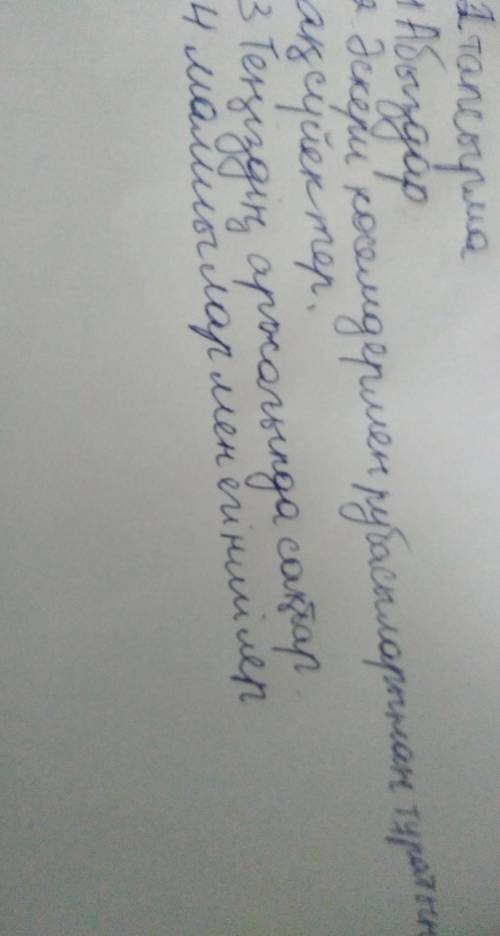 2 тапсырма
1 Абыздар
2. Әскери көсемдермен рубасыларынан тұратын
ақсүйектер.
3 Теңіздің арғжағында сақтар.
4 малшылармен егіншілер